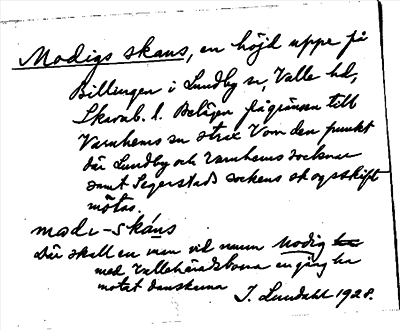 Modigs skans, en höjd uppe på
Billingen i Lundby sn, Valle hd,
Skarab. l. Belägen på gränsen till
Varnhems sn strax V om den punkt
där Lundby och Varnhems socknar
samt Segerstads sockens skogsskift
mötas.
mod-skáns
Där skall en man vid namn Modig
med Valleháradsborna en gång ha
motat danskarna
J. Lundahl 1928.